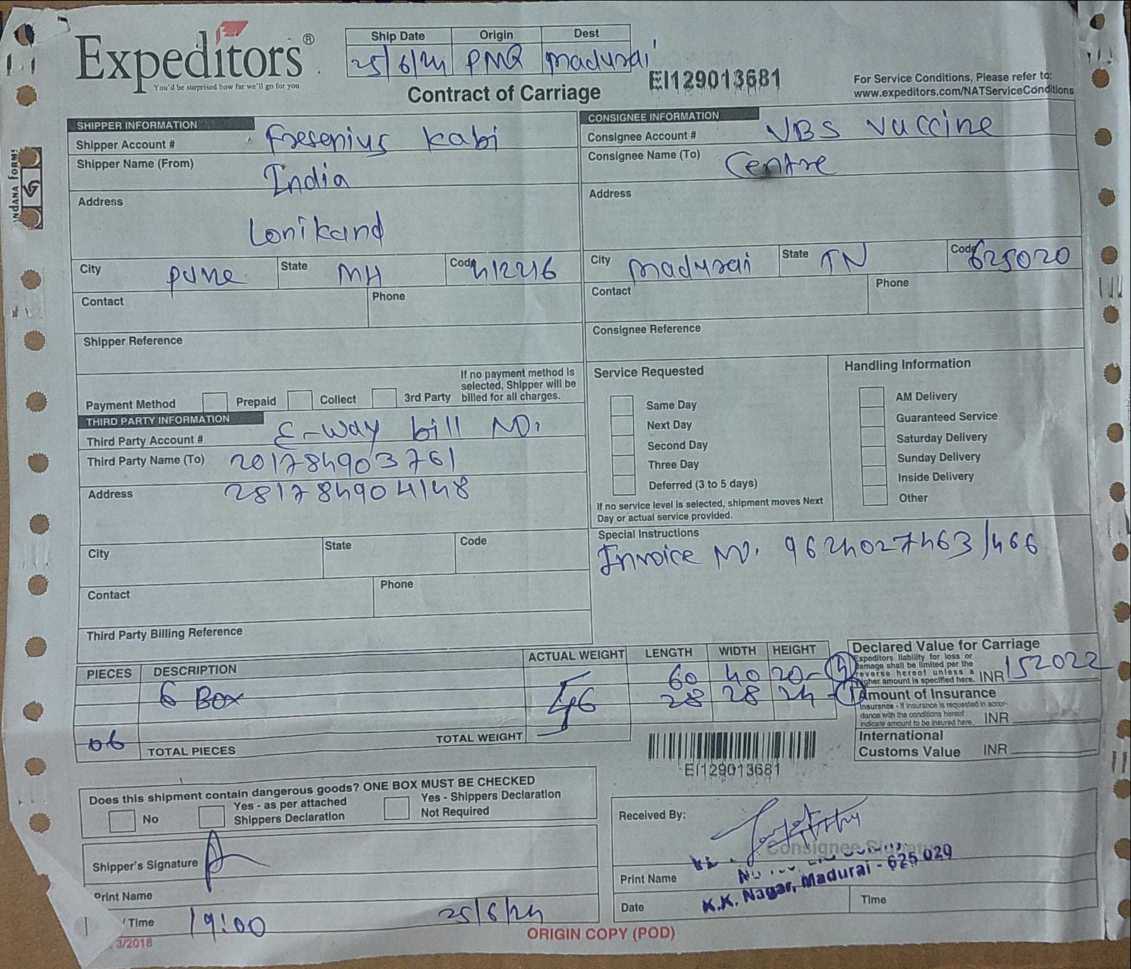 Expeditors®
You'd be surprised how far we'll go for you
Ship Date Origin Dest
25/6/24 PNQ Madurai
Contract of Carriage
EI129013681
For Service Conditions, Please refer to:
www.expeditors.com/NATServiceConditions
SHIPPER INFORMATION
Shipper Account #
Fresenius Kabi
Shipper Name (From)
India
Address
Lonikand
City Pune State MH Code 412216
Contact Phone
Shipper Reference
Payment Method Prepaid Collect 3rd Party
If no payment method is
selected, Shipper will be
billed for all charges.
CONSIGNEE INFORMATION
Consignee Account #
VBS Vaccine
Consignee Name (To)
Centre
Address
City Madurai State TN Code 625020
Contact Phone
Consignee Reference
THIRD PARTY INFORMATION
Third Party Account #
E-way bill No.
Third Party Name (To) 201784903761
Address 281784904148
City State Code
Contact Phone
Third Party Billing Reference
Service Requested
Same Day
Next Day
Second Day
Three Day
Deferred (3 to 5 days)
If no service level is selected, shipment moves Next
Day or actual service provided.
Handling Information
AM Delivery
Guaranteed Service
Saturday Delivery
Sunday Delivery
Inside Delivery
Other
Special Instructions
Invoice No. 9624027463/466
PIECES DESCRIPTION ACTUAL WEIGHT LENGTH WIDTH HEIGHT
6 Box 46 60 40 20-
28 28 24-
06 TOTAL PIECES TOTAL WEIGHT
EI129013681
Declared Value for Carriage
Expeditors liability for loss or
damage shall be limited per the
reverse hereof unless a
higher amount is specified here. INR 152022
Amount of Insurance
Insurance - If insurance is requested in accor-
dance with the conditions hereof
indicate amount to be insured here. INR
International
Customs Value INR
Does this shipment contain dangerous goods? ONE BOX MUST BE CHECKED
No
Yes - as per attached
Shippers Declaration
Yes - Shippers Declaration
Not Required
Shipper's Signature
Print Name
Time 19:00 25/6/24
3/2018
Received By:
Consignee
Print Name
K.K. Nagar, Madurai - 625 020
Date Time
ORIGIN COPY (POD)